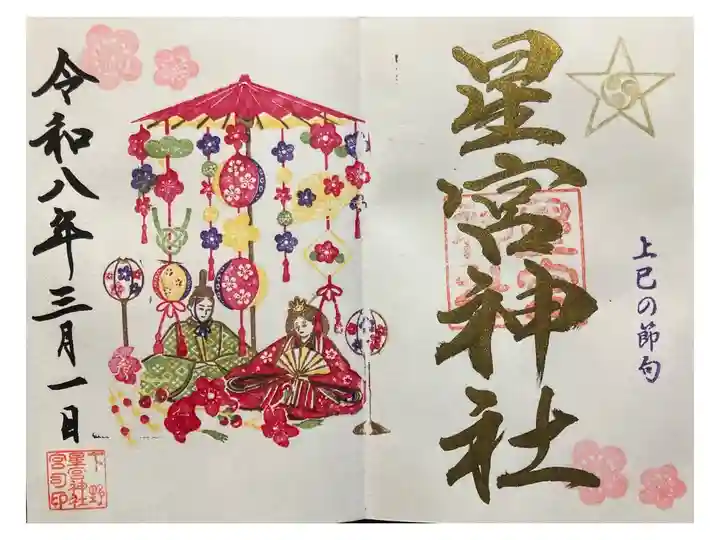 星宮神社
上巳の節句
令和八年三月一日
下野
星宮神社
宮司印